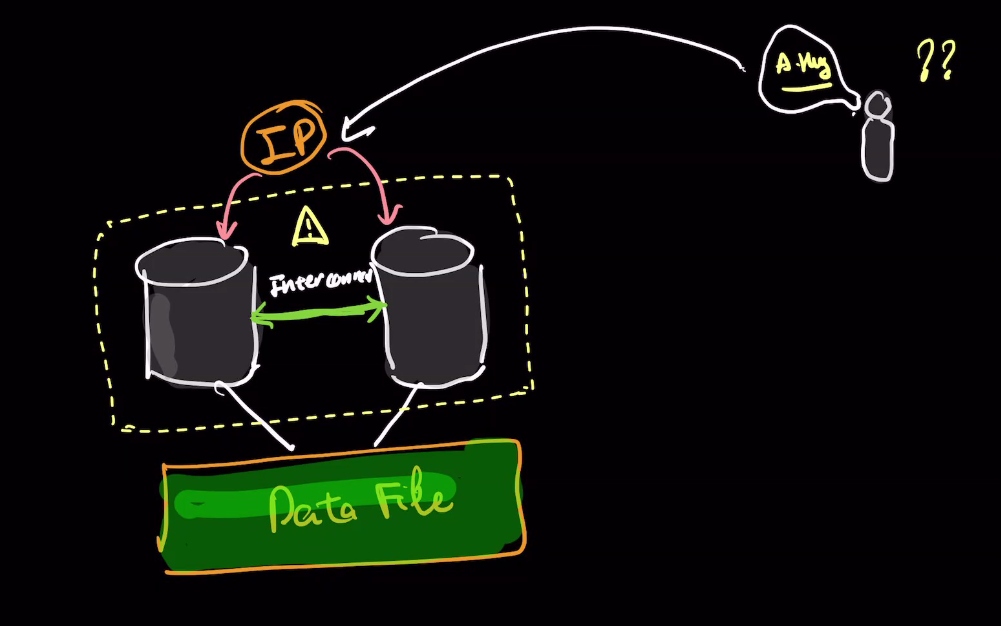 ??
IP
Interconnect
Data File